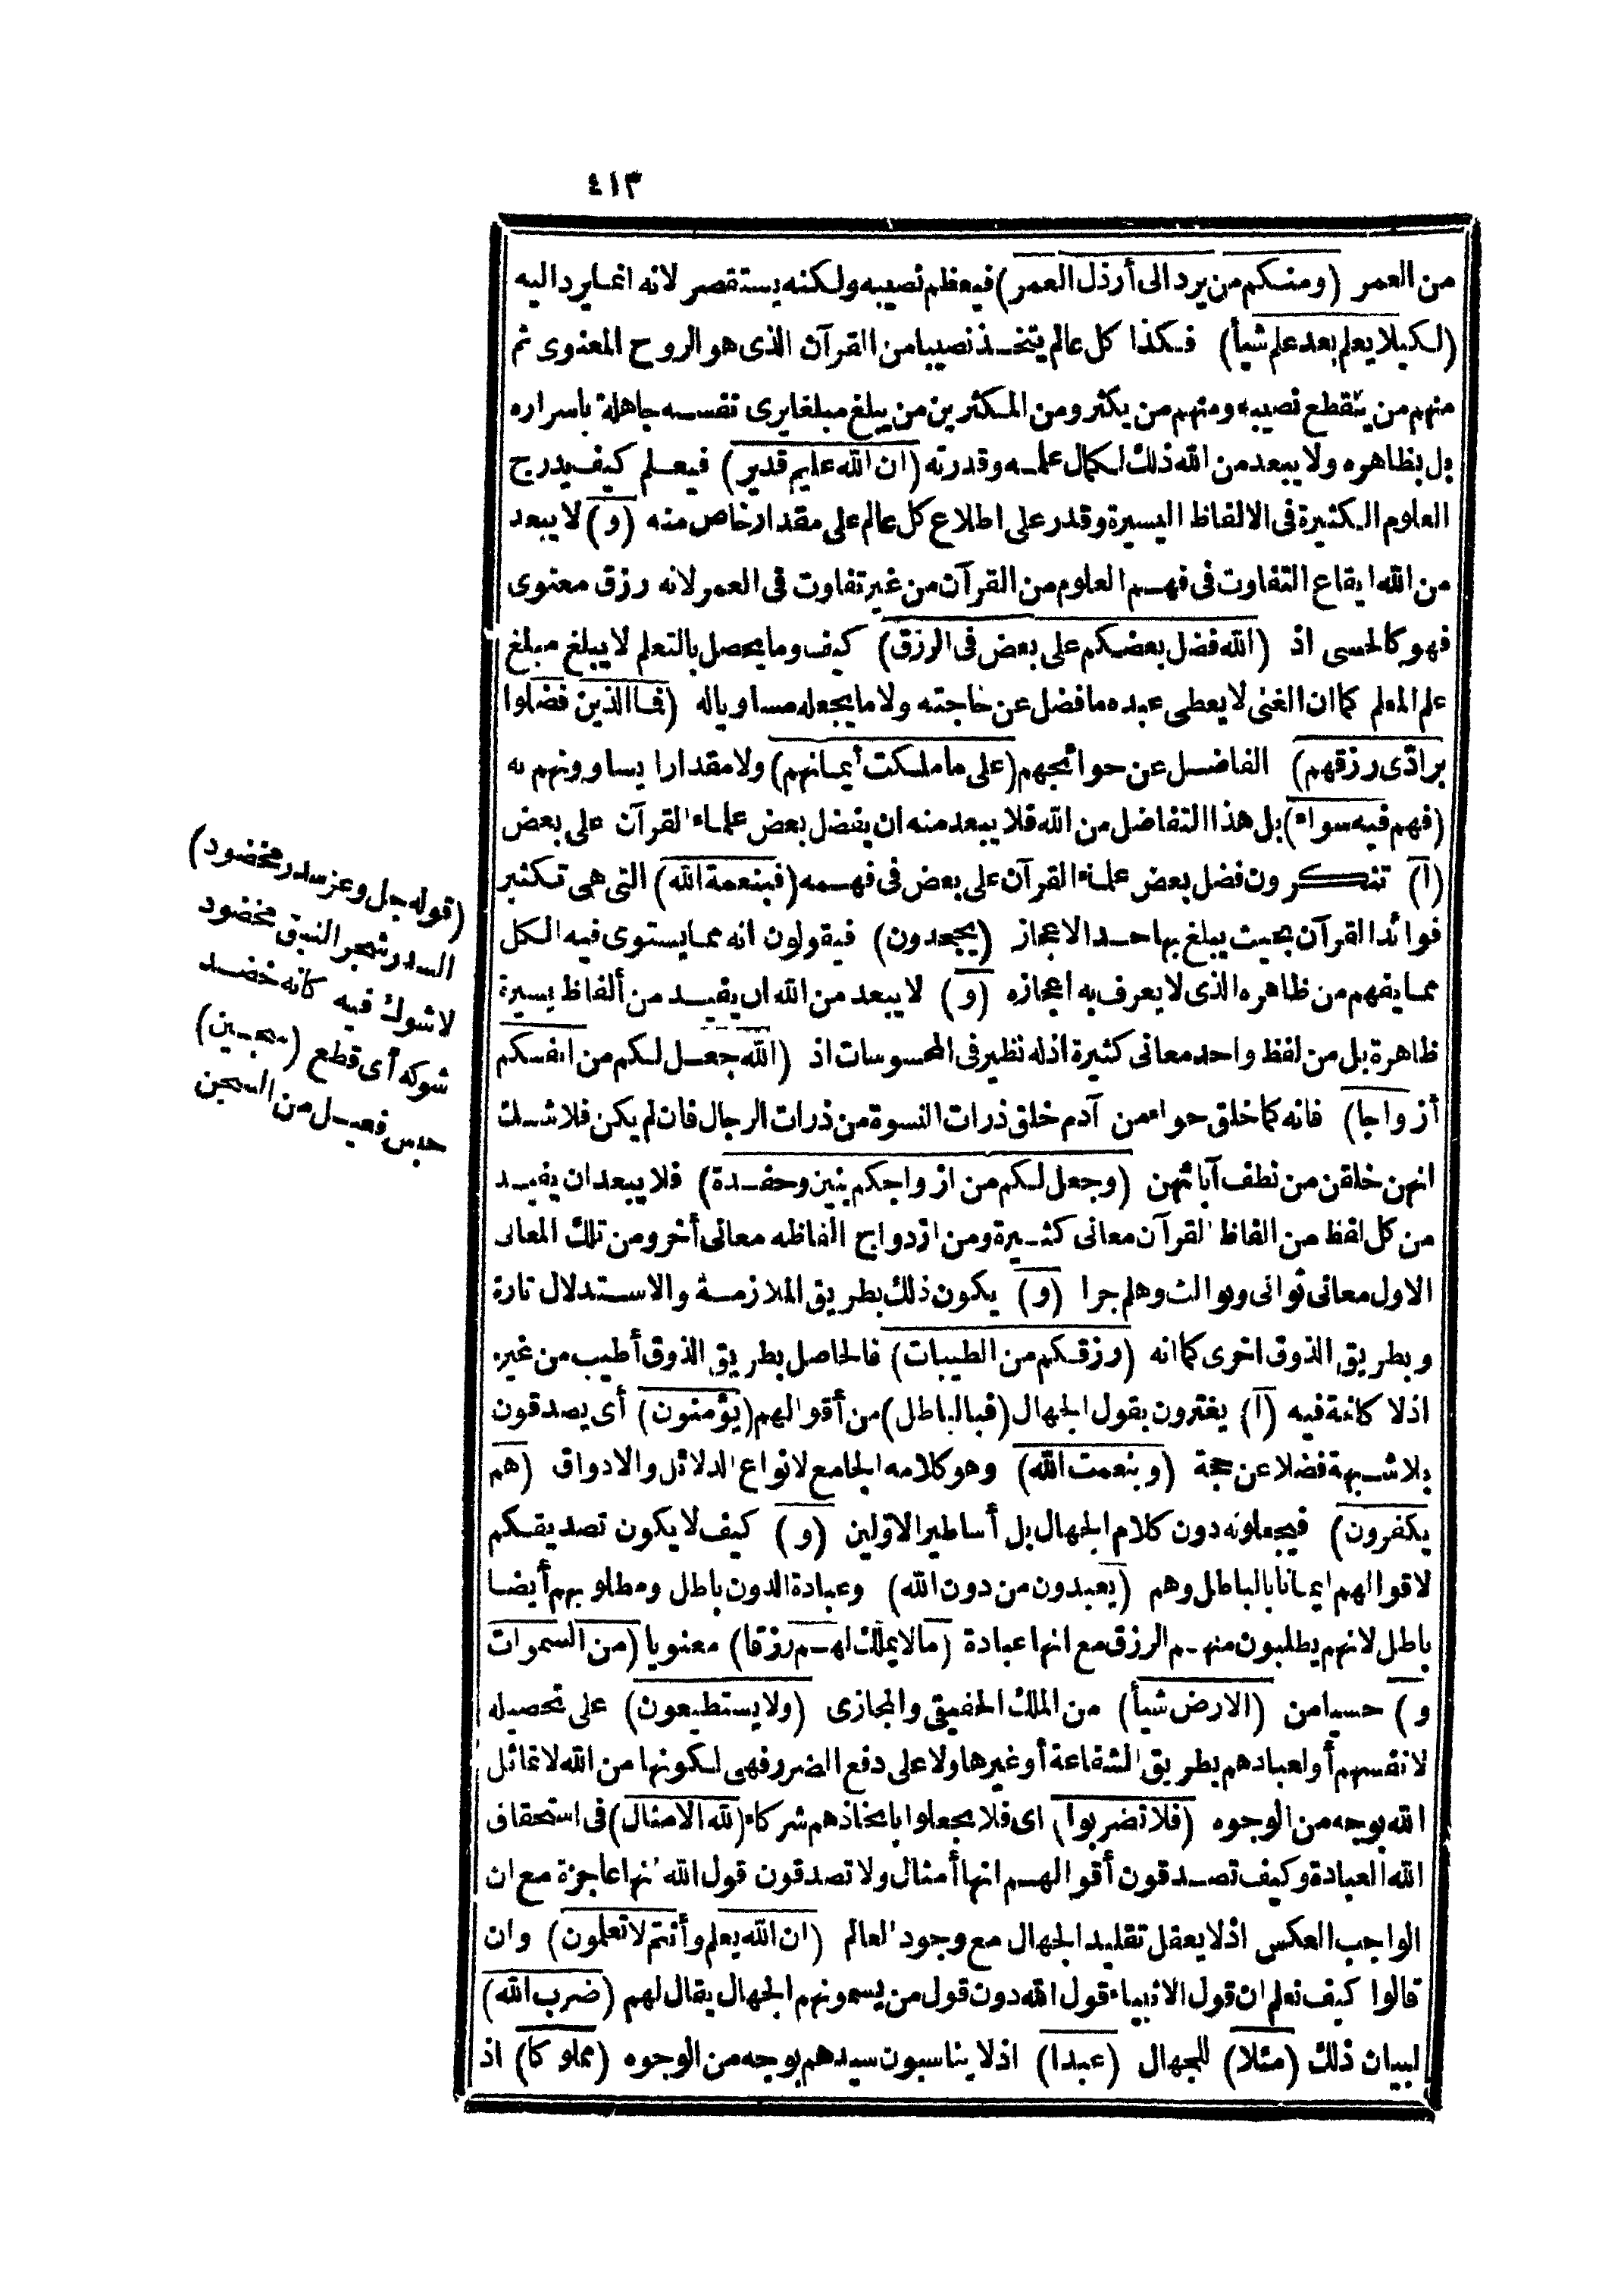 ٤١٣
من العمر (ومنكم من يرد الى أرذل العمر) فيعظم نصيبه ولكنه يستقصر لانه انما يرد اليه
(لكيلا يعلم بعد علم شيأ) فكذا كل عالم يتخذ نصيبا من القرآن الذى هو الروح المعنوى ثم
منهم من ينقطع نصيبه ومنهم من يكثر ومن المكثرين من يبلغ مبلغا يرى نفسه جاهلة باسراره
بل بظاهره ولا يبعد من الله ذلك لكمال علمه وقدرته (ان الله عليم قدير) فيعلم كيف يدرج
العلوم الكثيرة فى الالفاظ اليسيرة وقدر على اطلاع كل عالم على مقدار خاص منه (و) لا يبعد
من الله ايقاع التفاوت فى فهم العلوم من القرآن من غير تفاوت فى العمر لانه رزق معنوى
فهو كالحسى اذ (الله فضل بعضكم على بعض فى الرزق) كيف وما يحصل بالتعلم لا يبلغ مبلغ
علم المعلم كما ان الغنى لا يعطى عبده ما فضل عن حاجته ولا ما يجعله مساويا له (فما الذين فضلوا
برادّى رزقهم) الفاضل عن حوائجهم (على ما ملكت أيمانهم) ولا مقدارا يساوونهم به
(فهم فيه سواء) بل هذا التفاضل من الله فلا يبعد منه ان يفضل بعض علماء القرآن على بعض
(أ) تنكرون فضل بعض علماء القرآن على بعض فى فهمه (فبنعمة الله) التى هى تكثير
فوائد القرآن بحيث يبلغ بها حد الاعجاز (يجحدون) فيقولون انه مما يستوى فيه الكل
مما يفهم من ظاهره الذى لا يعرف به اعجازه (و) لا يبعد من الله ان يفيد من ألفاظ يسيرة
ظاهرة بل من لفظ واحد معانى كثيرة اذ له نظير فى المحسوسات اذ (الله جعل لكم من انفسكم
أزواجا) فانه كما خلق حواء من آدم خلق ذرات النسوة من ذرات الرجال فان لم يكن فلا شك
انهن خلقن من نطف آبائهن (وجعل لكم من ازواجكم بنين وحفدة) فلا يبعد ان يفيد
من كل لفظ من الفاظ القرآن معانى كثيرة ومن ازدواج الفاظه معانى أخر ومن تلك المعانى
الاول معانى ثوانى وثوالث وهلم جرا (و) يكون ذلك بطريق الملازمة والاستدلال تارة
وبطريق الذوق اخرى كما انه (رزقكم من الطيبات) فالحاصل بطريق الذوق أطيب من غيره
اذ لا كلفة فيه (أ) يغترون بقول الجهال (فبالباطل) من أقوالهم (يؤمنون) أى يصدقون
بلا شبهة فضلا عن حجة (وبنعمت الله) وهو كلامه الجامع لانواع الدلائل والاذواق (هم
يكفرون) فيجعلونه دون كلام الجهال بل أساطير الاوّلين (و) كيف لا يكون تصديقكم
لاقوالهم ايمانا بالباطل وهم (يعبدون من دون الله) وعبادة الدون باطل ومطلوبهم أيضا
باطل لانهم يطلبون منهم الرزق مع انها عبادة (ما لا يملك لهم رزقا) معنويا (من السموات
و) حسيا من (الارض شيأ) من الملك الحقيقى والمجازى (ولا يستطيعون) على تحصيله
لانفسهم أو لعبادهم بطريق الشفاعة أو غيرها ولا على دفع الضرر فهى لكونها من الله لا تماثل
الله بوجه من الوجوه (فلا تضربوا) اى فلا تجعلوا باتخاذهم شركاء (لله الامثال) فى استحقاق
الله العبادة وكيف تصدقون أقوالهم انها أمثال ولا تصدقون قول الله انها عاجزة مع ان
الواجب العكس اذ لا يعقل تقليد الجهال مع وجود العالم (ان الله يعلم وأنتم لا تعلمون) وان
قالوا كيف نعلم ان قول الانبياء قول الله دون قول من يسمونهم الجهال يقال لهم (ضرب الله)
لبيان ذلك (مثلا) للجهال (عبدا) اذ لا يناسبون سيدهم بوجه من الوجوه (مملوكا) اذ
(قوله جل وعز سدر مخضود)
السدر شجر النبق مخضود
لا شوك فيه كانه خضد
شوكه أى قطع (سجين)
حبس فعيل من السجن